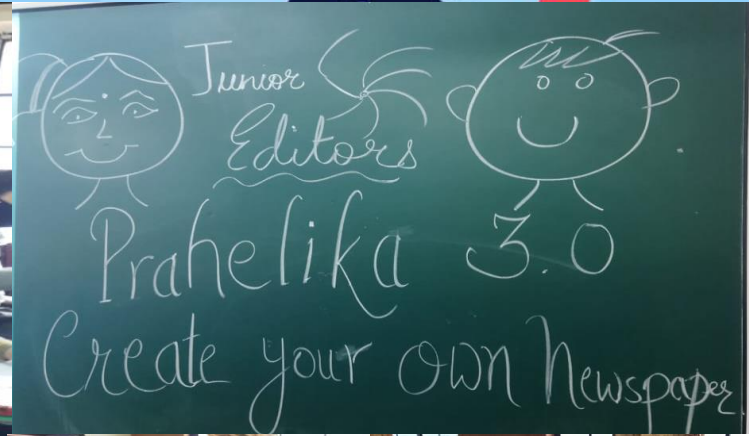 Junior
Editors
Prahelika 3.0
Create your own Newspaper